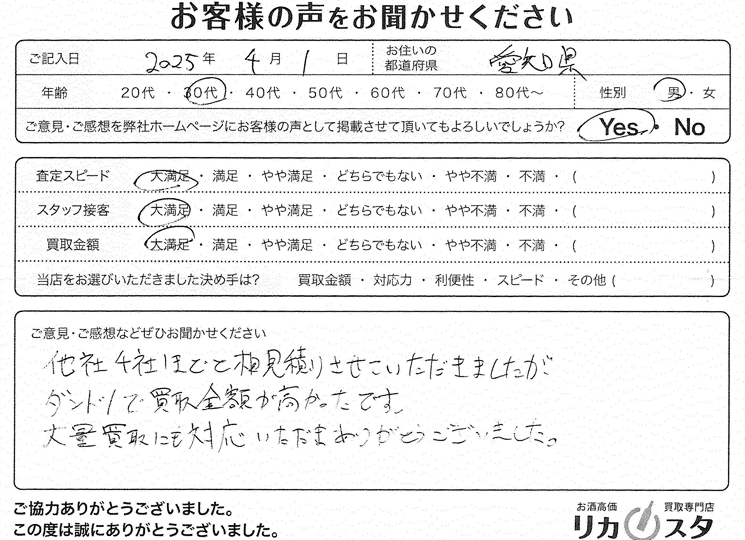 お客様の声をお聞かせください
ご記入日 2025年 4月 1日 お住いの都道府県 愛知県
年齢 20代 ・ 30代 ・ 40代 ・ 50代 ・ 60代 ・ 70代 ・ 80代〜 性別 男 ・ 女
ご意見・ご感想を弊社ホームページにお客様の声として掲載させて頂いてもよろしいでしょうか? Yes ・ No
査定スピード 大満足 ・ 満足 ・ やや満足 ・ どちらでもない ・ やや不満 ・ 不満 ・ ( )
スタッフ接客 大満足 ・ 満足 ・ やや満足 ・ どちらでもない ・ やや不満 ・ 不満 ・ ( )
買取金額 大満足 ・ 満足 ・ やや満足 ・ どちらでもない ・ やや不満 ・ 不満 ・ ( )
当店をお選びいただきました決め手は? 買取金額 ・ 対応力 ・ 利便性 ・ スピード ・ その他 ( )
ご意見・ご感想などぜひお聞かせください
他社4社ほどと相見積りさせていただきましたが
ダントツで買取金額が高かったです。
大量買取にも対応いただきありがとうございました。
ご協力ありがとうございました。
この度は誠にありがとうございます。
お酒高価 買取専門店
リカスタ